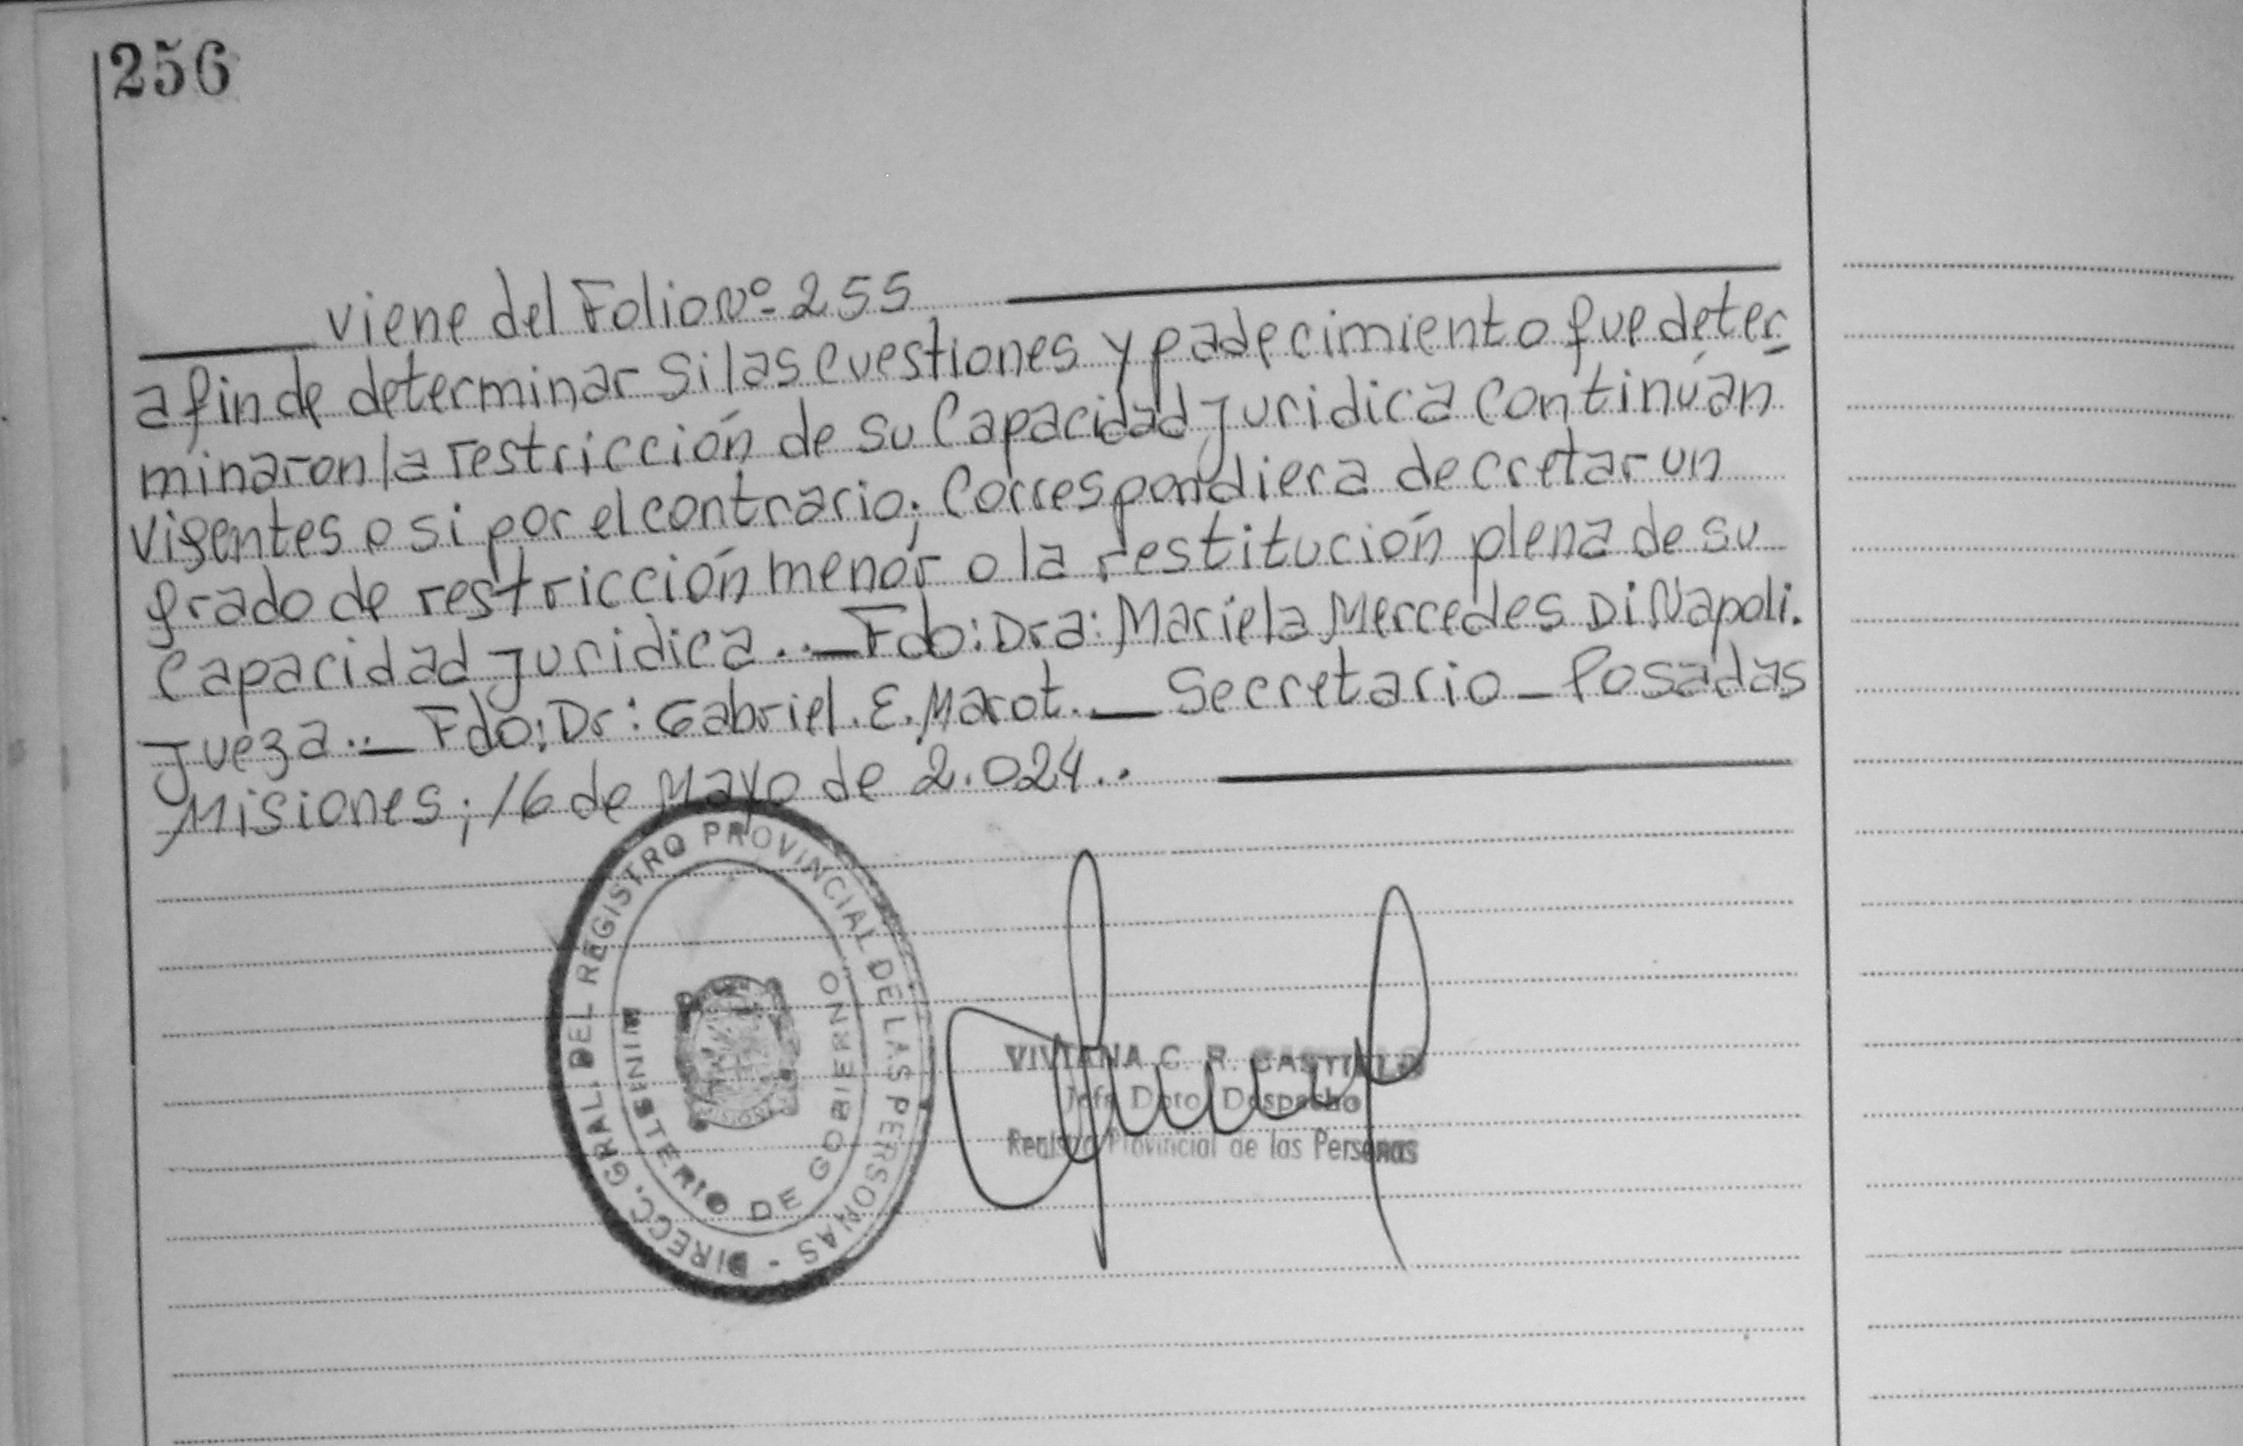 256
viene del Folio Nº 255
a fin de determinar si las cuestiones y padecimiento que deter
minaron la restricción de su Capacidad Juridica continúan
vigentes o si por el contrario; Correspondiera decretar un
grado de restricción menor o la restitución plena de su
Capacidad Juridica.._Fdo: Dra: Mariela Mercedes Di Napoli.
Jueza.._ Fdo: Dr: Gabriel. E. Marot._ Secretario_ Posadas
Misiones; 16 de Mayo de 2.024..
DIRECC. GRAL. DEL REGISTRO PROVINCIAL DE LAS PERSONAS -
MINISTERIO DE GOBIERNO
VIVIANA C. R. CASTILLO
Jefe Dpto. Despacho
Registro Provincial de las Personas